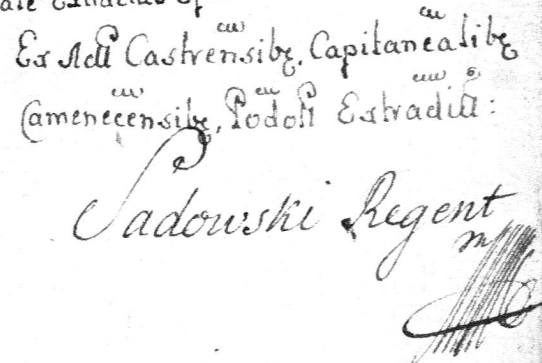 Ex Actis Castrensibꝫ, Capitanealibꝫ
Camenecensibꝫ, Podoł Extradit:
Sadowski Regent
mp